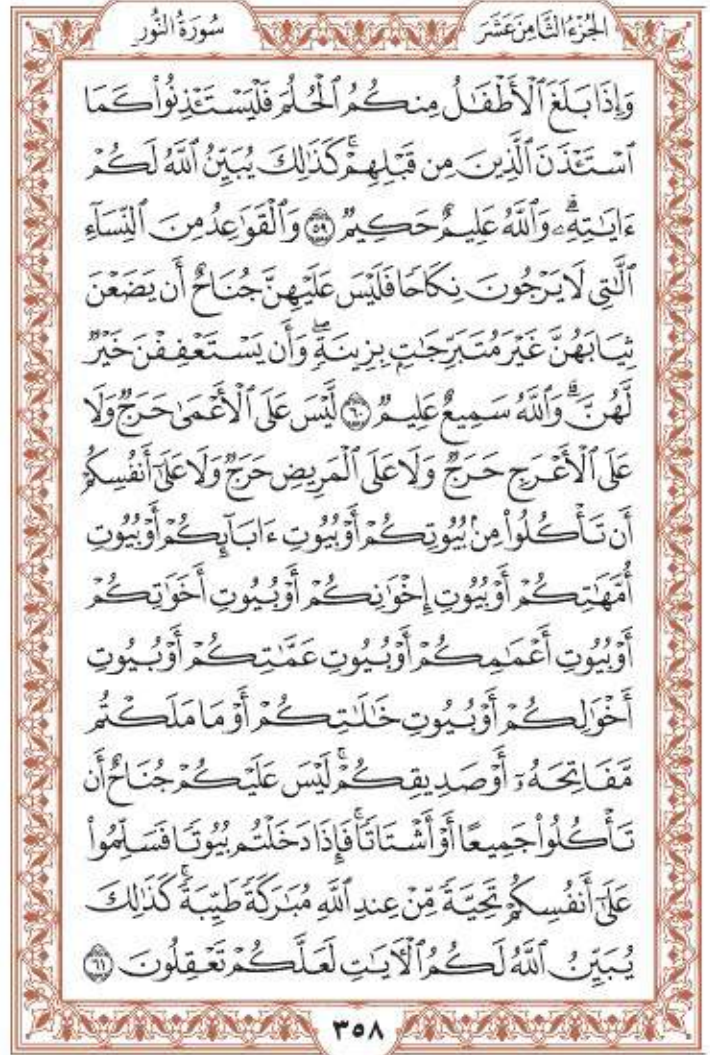 الجزء الثامن عشر
سورة النور
وَإِذَا بَلَغَ ٱلْأَطْفَٰلُ مِنكُمُ ٱلْحُلُمَ فَلْيَسْتَـْٔذِنُوا۟ كَمَا
ٱسْتَـْٔذَنَ ٱلَّذِينَ مِن قَبْلِهِمْ ۚ كَذَٰلِكَ يُبَيِّنُ ٱللَّهُ لَكُمْ
ءَايَٰتِهِۦ ۗ وَٱللَّهُ عَلِيمٌ حَكِيمٌ ٥٩ وَٱلْقَوَٰعِدُ مِنَ ٱلنِّسَآءِ
ٱلَّٰتِى لَا يَرْجُونَ نِكَاحًا فَلَيْسَ عَلَيْهِنَّ جُنَاحٌ أَن يَضَعْنَ
ثِيَابَهُنَّ غَيْرَ مُتَبَرِّجَٰتٍۭ بِزِينَةٍ ۖ وَأَن يَسْتَعْفِفْنَ خَيْرٌ
لَّهُنَّ ۗ وَٱللَّهُ سَمِيعٌ عَلِيمٌ ٦٠ لَّيْسَ عَلَى ٱلْأَعْمَىٰ حَرَجٌ وَلَا
عَلَى ٱلْأَعْرَجِ حَرَجٌ وَلَا عَلَى ٱلْمَرِيضِ حَرَجٌ وَلَا عَلَىٰٓ أَنفُسِكُمْ
أَن تَأْكُلُوا۟ مِنۢ بُيُوتِكُمْ أَوْ بُيُوتِ ءَابَآئِكُمْ أَوْ بُيُوتِ
أُمَّهَٰتِكُمْ أَوْ بُيُوتِ إِخْوَٰنِكُمْ أَوْ بُيُوتِ أَخَوَٰتِكُمْ
أَوْ بُيُوتِ أَعْمَٰمِكُمْ أَوْ بُيُوتِ عَمَّٰتِكُمْ أَوْ بُيُوتِ
أَخْوَٰلِكُمْ أَوْ بُيُوتِ خَٰلَٰتِكُمْ أَوْ مَا مَلَكْتُم
مَّفَاتِحَهُۥٓ أَوْ صَدِيقِكُمْ ۚ لَيْسَ عَلَيْكُمْ جُنَاحٌ أَن
تَأْكُلُوا۟ جَمِيعًا أَوْ أَشْتَاتًا ۚ فَإِذَا دَخَلْتُم بُيُوتًا فَسَلِّمُوا۟
عَلَىٰٓ أَنفُسِكُمْ تَحِيَّةً مِّنْ عِندِ ٱللَّهِ مُبَٰرَكَةً طَيِّبَةً ۚ كَذَٰلِكَ
يُبَيِّنُ ٱللَّهُ لَكُمُ ٱلْءَايَٰتِ لَعَلَّكُمْ تَعْقِلُونَ ٦١
٣٥٨